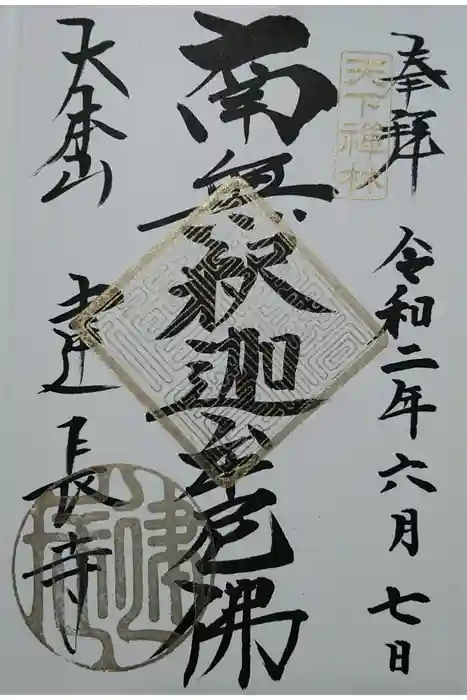 奉拝 令和二年六月七日
天下禅林
南無釈迦牟尼佛
大本山 建長寺